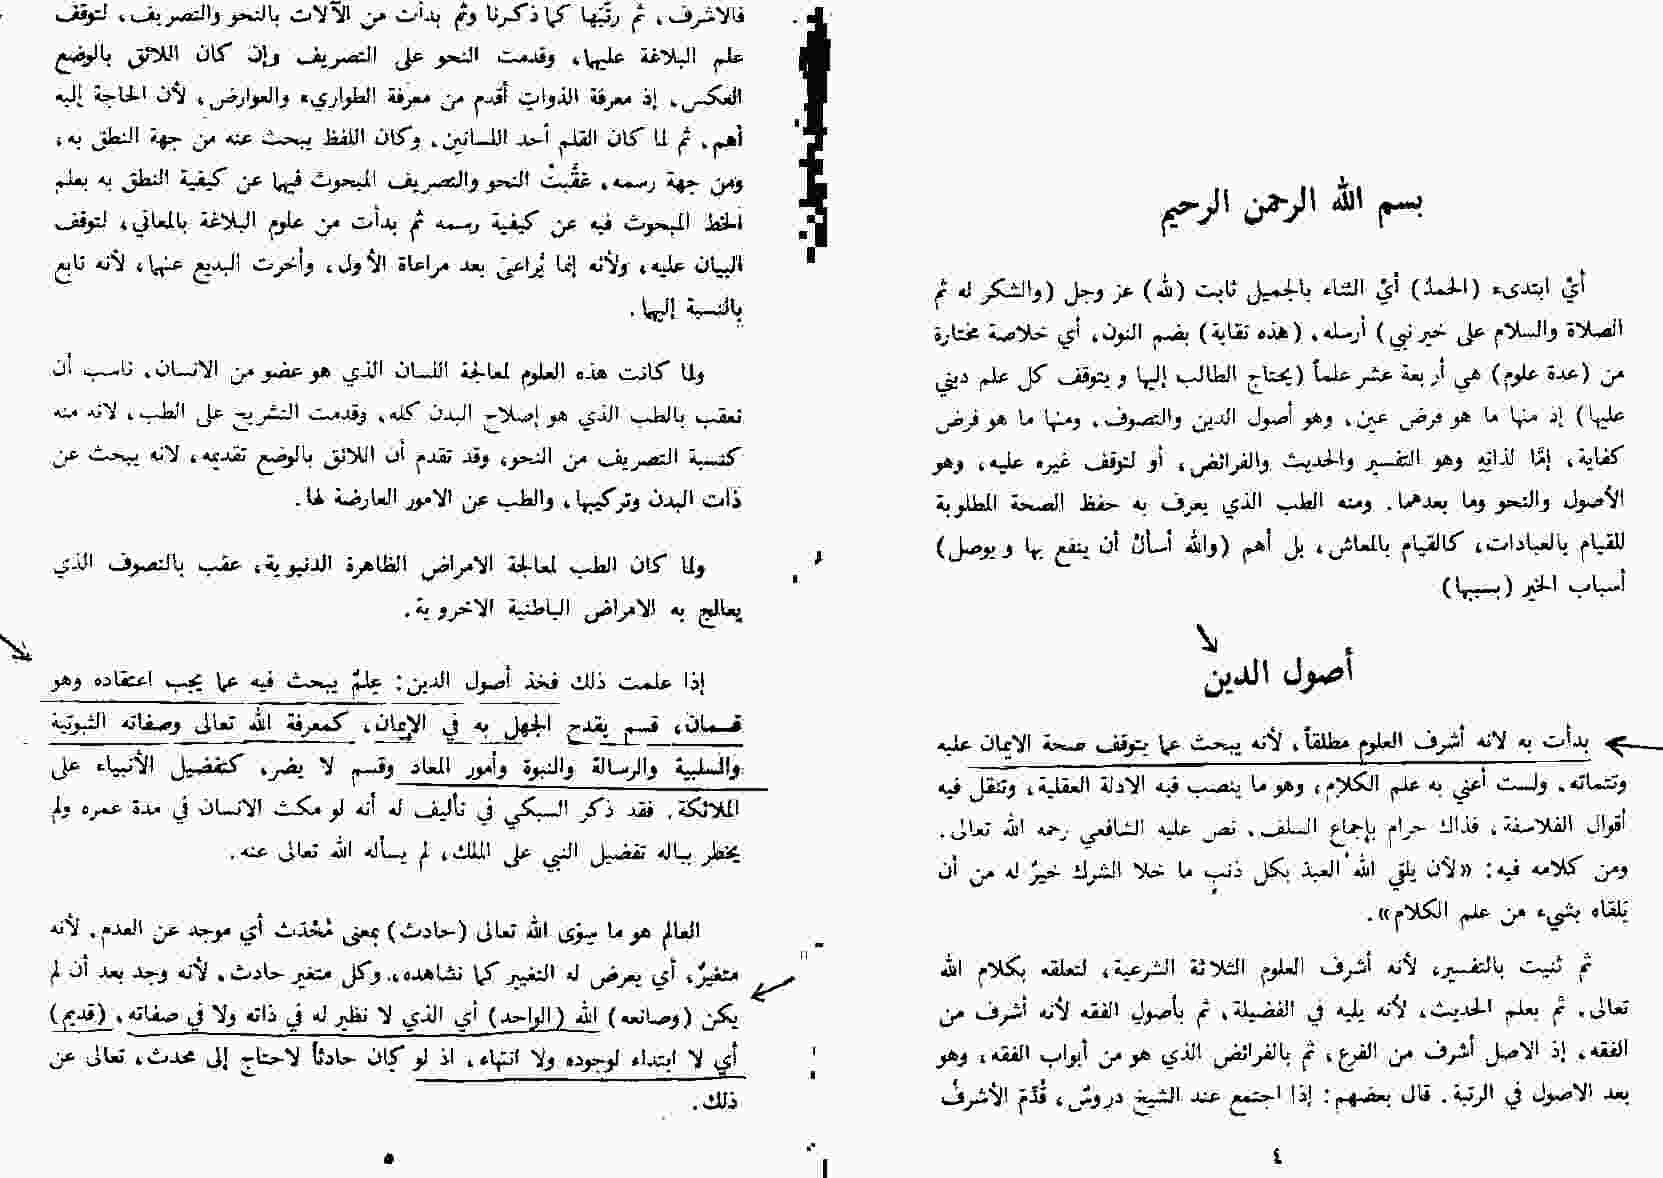 بسم الله الرحمن الرحيم
أيْ ابتدىء (الحمدُ) أيْ الثناء بالجميل ثابت (لله) عز وجل (والشكر له ثم
الصلاة والسلام على خير نبي) أرسله. (هذه نقاية) بضم النون، أي خلاصة مختارة
من (عدة علوم) هي أربعة عشر علماً (يحتاج الطالب إليها ويتوقف كل علم ديني
عليها) إذ منها ما هو فرض عين. وهو أصول الدين والتصوف. ومنها ما هو فرض
كفاية. إمَّا لذاتِهِ وهو التفسير والحديث والفرائض، أو لتوقف غيره عليه، وهو
الأصول والنحو وما بعدهما. ومنه الطب الذي يعرف به حفظ الصحة المطلوبة
للقيام بالعبادات، كالقيام بالمعاش، بل أهم (والله أسألُ أن ينفع بها ويوصل)
أسباب الخير (بسببها)
أصول الدين
بدأت به لانه أشرف العلوم مطلقاً، لأنه يبحث عما يتوقف صحة الايمان عليه
وتتماته. ولست أعني به علم الكلام، وهو ما ينصب فيه الادلة العقلية، وتنقل فيه
أقوال الفلاسفة، فذاك حرام بإجماع السلف. نص عليه الشافعي رحمه الله تعالى.
ومن كلامه فيه: «لأن يلقى اللهَ العبدُ بكل ذنبٍ ما خلا الشرك خيرٌ له من أن
يَلقاه بشيء من علم الكلام».
ثم ثنيت بالتفسير، لأنه أشرف العلوم الثلاثة الشرعية، لتعلقه بكلام الله
تعالى. ثم بعلم الحديث، لأنه يليه في الفضيلة. ثم بأصول الفقه لأنه أشرف من
الفقه. إذ الاصل أشرف من الفرع، ثم بالفرائض الذي هو من أبواب الفقه، وهو
بعد الاصول في الرتبة. قال بعضهم: إذا اجتمع عند الشيخ دروسٌ، قُدِّمَ الأشرفُ
٤
فالأشرف، ثم رتَّبتها كما ذكرنا وثم بدأت من الآلات بالنحو والتصريف، لتوقف
علم البلاغة عليها، وقدمت النحو على التصريف وإن كان اللائق بالوضع
العكس. إذ معرفة الذوات أقدم من معرفة الطوارىء والعوارض، لأن الحاجة إليه
أهم. ثم لما كان القلم أحد اللسانين. وكان اللفظ يبحث عنه من جهة النطق به،
ومن جهة رسمه. عقَّبتُ النحو والتصريف المبحوث فيها عن كيفية النطق به بعلم
الخط المبحوث فيه عن كيفية رسمه ثم بدأت من علوم البلاغة بالمعاني، لتوقف
البيان عليه، ولأنه إنما يُراعى بعد مراعاة الأول، وأخرت البديع عنها، لأنه تابع
بالنسبة إليها.
ولما كانت هذه العلوم لمعالجة اللسان الذي هو عضو من الانسان، ناسب أن
نعقب بالطب الذي هو إصلاح البدن كله، وقدمت التشريح على الطب، لانه منه
كنسبة التصريف من النحو، وقد تقدم أن اللائق بالوضع تقديمه، لانه يبحث عن
ذات البدن وتركيبها، والطب عن الامور العارضة لها.
ولما كان الطب لمعالجة الامراض الظاهرة الدنيوية، عقب بالتصوف الذي
يعالج به الامراض الباطنية الاخروية.
إذا علمت ذلك فخذ أصول الدين: عِلمٌ يبحث فيه عما يجب اعتقاده وهو
قسمان، قسم يقدح الجهل به في الإيمان، كمعرفة الله تعالى وصفاته الثبوتية
والسلبية والرسالة والنبوة وأمور المعاد وقسم لا يضر، كتفضيل الأنبياء على
الملائكة. فقد ذكر السبكي في تأليف له أنه لو مكث الانسان في مدة عمره ولم
يخطر بباله تفضيل النبي على الملك، لم يسأله الله تعالى عنه.
العالم هو ما سِوَى الله تعالى (حادث) بمعنى مُحْدَث أي موجد عن العدم. لأنه
متغيرٌ، أي يعرض له التغيير كما نشاهده، وكل متغير حادث. لأنه وجد بعد أن لم
يكن (وصانعه) الله (الواحد) أي الذي لا نظير له في ذاته ولا في صفاته. (قديم)
أي لا ابتداء لوجوده ولا انتهاء. اذ لو كان حادثاً لاحتاج إلى محدث، تعالى عن
ذلك.
٥